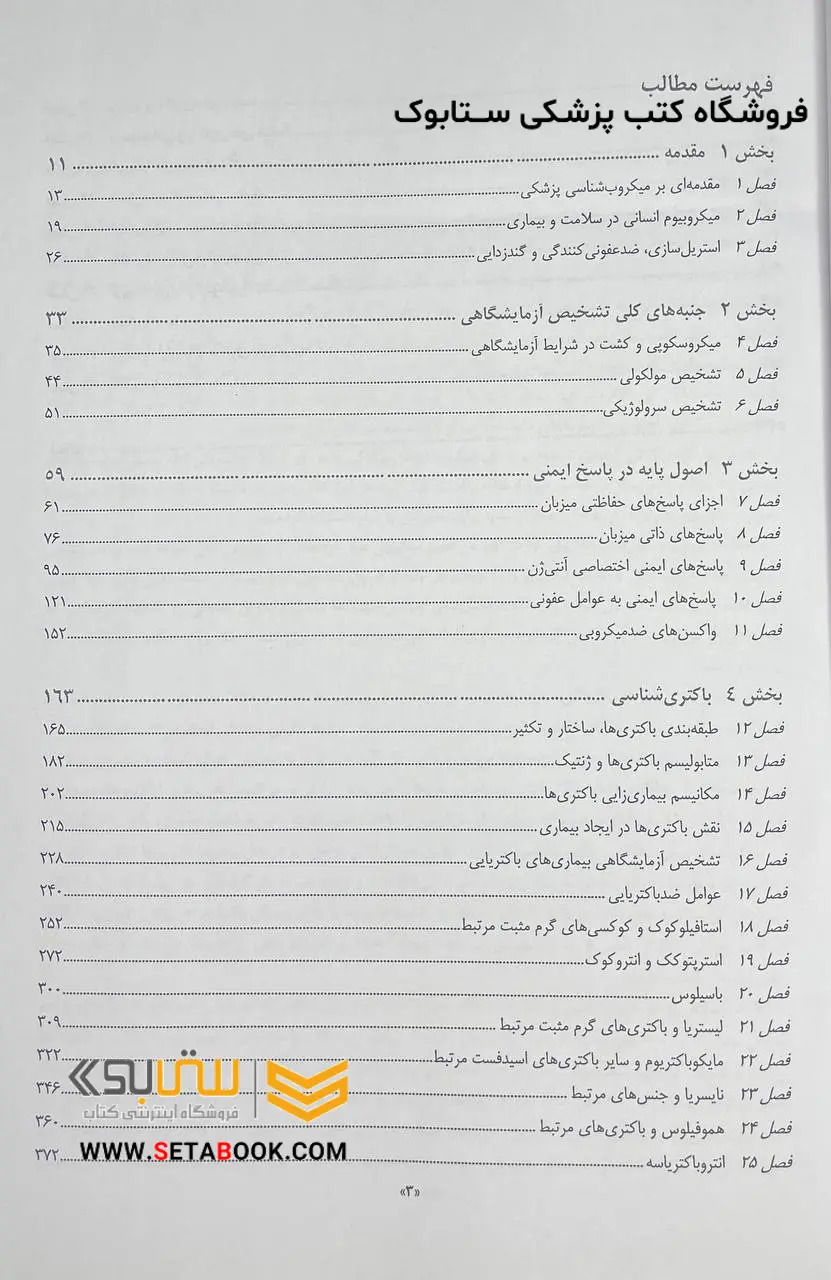 فهرست مطالب
فروشگاه کتب پزشکی ستابوک
بخش ۱ مقدمه ۱۱
فصل ۱ مقدمه‌ای بر میکروب‌شناسی پزشکی ۱۳
فصل ۲ میکروبیوم انسانی در سلامت و بیماری ۱۹
فصل ۳ استریل‌سازی، ضدعفونی‌کنندگی و گندزدایی ۲۶
بخش ۲ جنبه‌های کلی تشخیص آزمایشگاهی ۳۳
فصل ۴ میکروسکوپی و کشت در شرایط آزمایشگاهی ۳۵
فصل ۵ تشخیص مولکولی ۴۴
فصل ۶ تشخیص سرولوژیکی ۵۱
بخش ۳ اصول پایه در پاسخ ایمنی ۵۹
فصل ۷ اجزای پاسخ‌های حفاظتی میزبان ۶۱
فصل ۸ پاسخ‌های ذاتی میزبان ۷۶
فصل ۹ پاسخ‌های ایمنی اختصاصی آنتی‌ژن ۹۵
فصل ۱۰ پاسخ‌های ایمنی به عوامل عفونی ۱۲۱
فصل ۱۱ واکسن‌های ضدمیکروبی ۱۵۲
بخش ٤ باکتری‌شناسی ۱۶۳
فصل ۱۲ طبقه‌بندی باکتری‌ها، ساختار و تکثیر ۱۶۵
فصل ۱۳ متابولیسم باکتری‌ها و ژنتیک ۱۸۲
فصل ۱۴ مکانیسم بیماری‌زایی باکتری‌ها ۲۰۲
فصل ۱۵ نقش باکتری‌ها در ایجاد بیماری ۲۱۵
فصل ۱۶ تشخیص آزمایشگاهی بیماری‌های باکتریایی ۲۲۸
فصل ۱۷ عوامل ضدباکتریایی ۲۴۰
فصل ۱۸ استافیلوکوک و کوکسی‌های گرم مثبت مرتبط ۲۵۲
فصل ۱۹ استرپتوکک و انتروکوک ۲۷۲
فصل ۲۰ باسیلوس ۳۰۰
فصل ۲۱ لیستریا و باکتری‌های گرم مثبت مرتبط ۳۰۹
فصل ۲۲ مایکوباکتریوم و سایر باکتری‌های اسیدفست مرتبط ۳۲۲
فصل ۲۳ نایسریا و جنس‌های مرتبط ۳۴۶
فصل ۲۴ هموفیلوس و باکتری‌های مرتبط ۳۶۰
فصل ۲۵ انتروباکتریاسه ۳۷۲
ستابوک
فروشگاه اینترنتی کتاب
WWW.SETABOOK.COM
«۳»